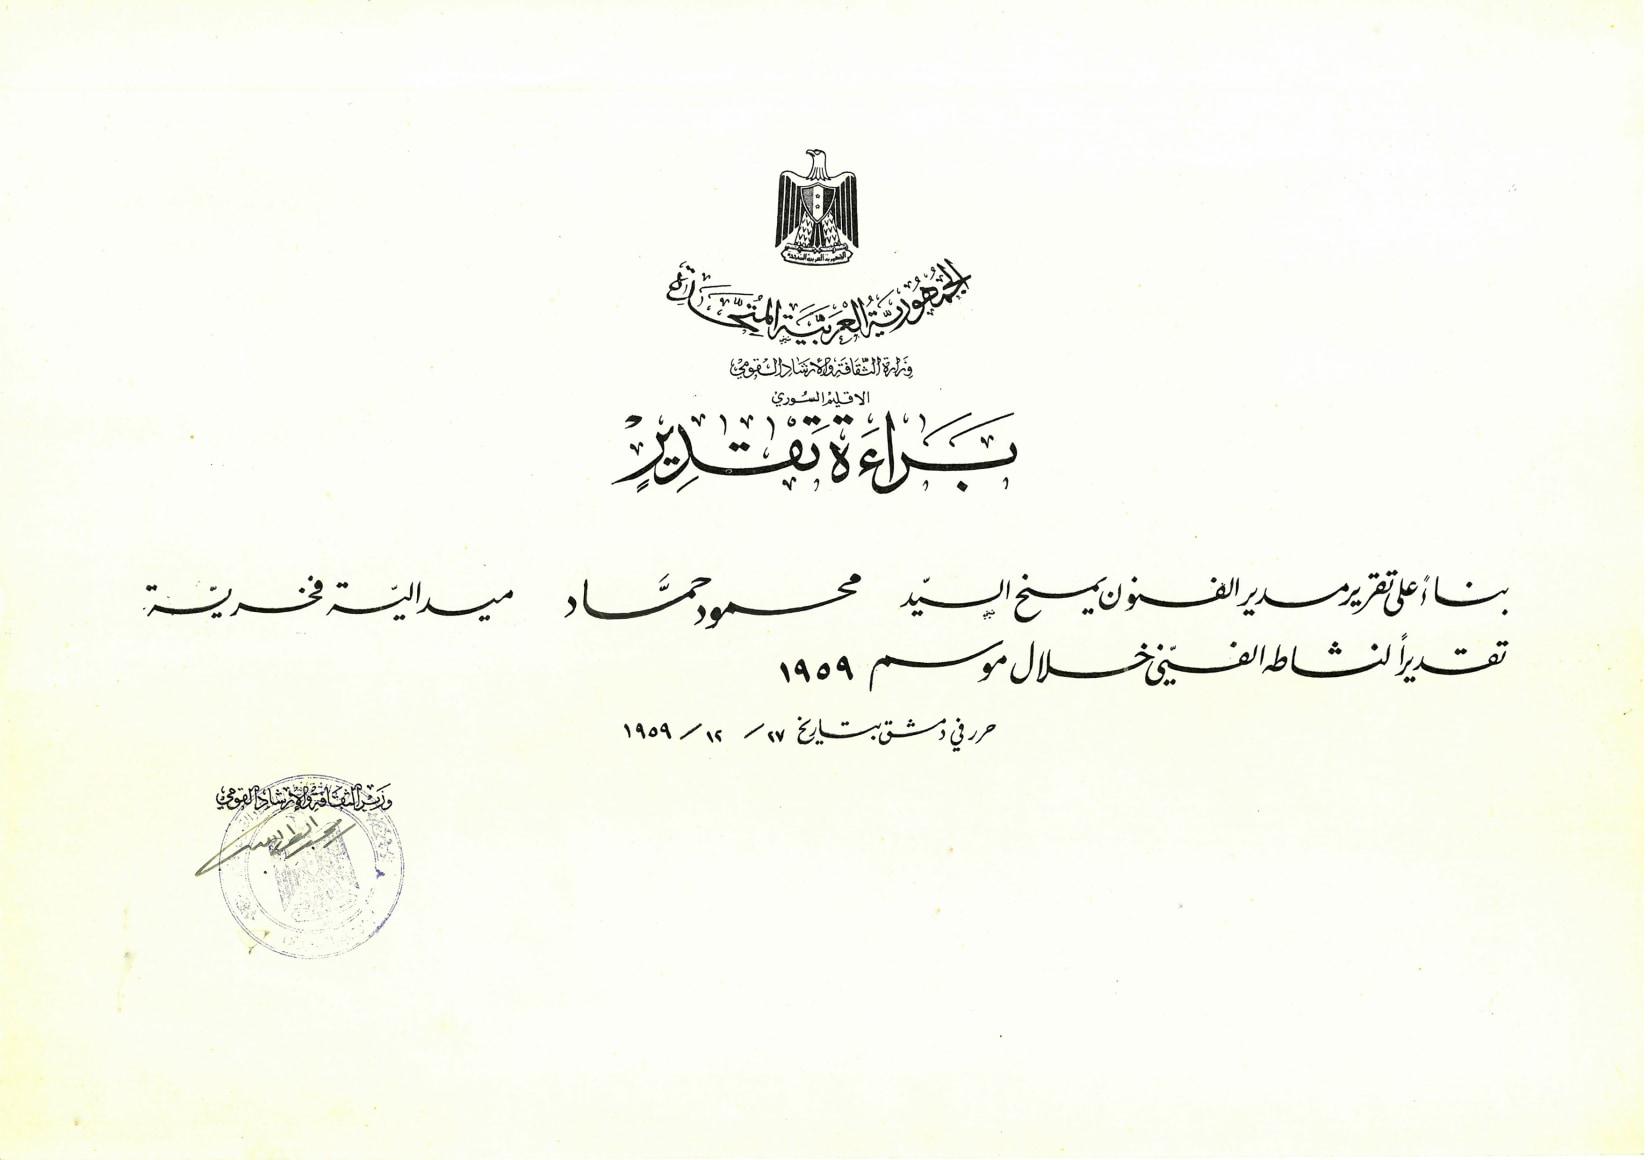 الجمهورية العربية المتحدة
الجُمهُورِيَّة العَرَبيَّة المُتَّحِدَة
وَزارة الثّقافَة وَالإرشاد القَومي
الاقليم السوري
بَراءَة تَقدِيرٍ
بناءً على تقرير مدير الفنون يمنح السيّد محمود حمَّاد ميداليّة فخريّة
تقديراً لنشاطه الفنيّ خلال موسم ١٩٥٩
حرر في دمشق بتاريخ ٢٧ / ١٢ / ١٩٥٩
وَزير الثقافة والإرشاد القومي